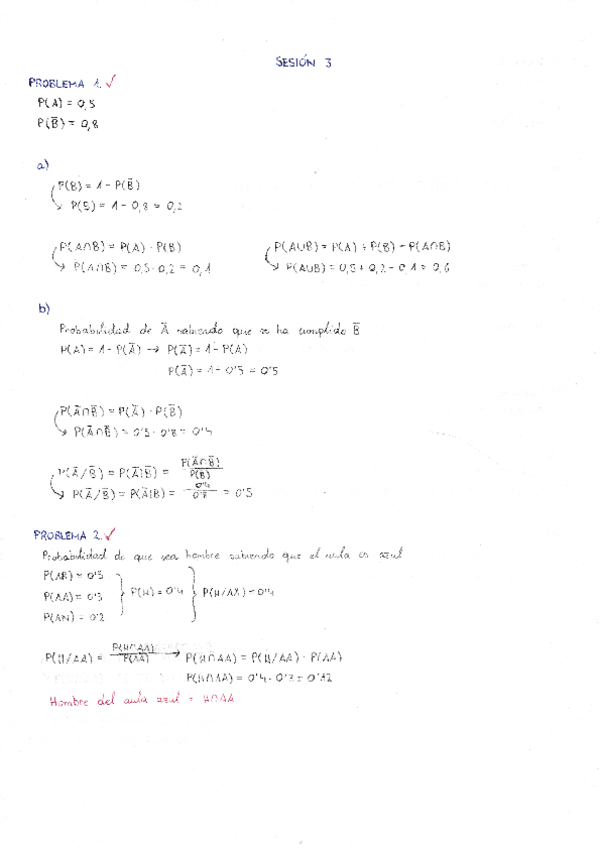 SESIÓN 3
PROBLEMA 1. ✓
P(A) = 0,5
P(B̅) = 0,8
a)
P(B) = 1 - P(B̅)
P(B) = 1 - 0,8 = 0,2
P(A∩B) = P(A) · P(B)
P(A∩B) = 0,5 · 0,2 = 0,1
P(A∪B) = P(A) + P(B) - P(A∩B)
P(A∪B) = 0,5 + 0,2 - 0,1 = 0,6
b)
Probabilidad de A̅ sabiendo que se ha cumplido B̅
P(A) = 1 - P(A̅) → P(A̅) = 1 - P(A)
P(A̅) = 1 - 0'5 = 0'5
P(A̅∩B̅) = P(A̅) · P(B̅)
P(A̅∩B̅) = 0'5 · 0'8 = 0'4
P(A̅/B̅) = P(A̅|B̅) = P(A̅∩B̅) / P(B̅)
P(A̅/B̅) = P(A̅|B̅) = 0'4 / 0'8 = 0'5
PROBLEMA 2. ✓
Probabilidad de que sea hombre sabiendo que el aula es azul
P(AR) = 0'5
P(AA) = 0'3
P(AN) = 0'2
P(H) = 0'4
P(H/AX) = 0'4
P(H/AA) = P(H∩AA) / P(AA) → P(H∩AA) = P(H/AA) · P(AA)
P(H∩AA) = 0'4 · 0'3 = 0'12
Hombre del aula azul = H∩AA